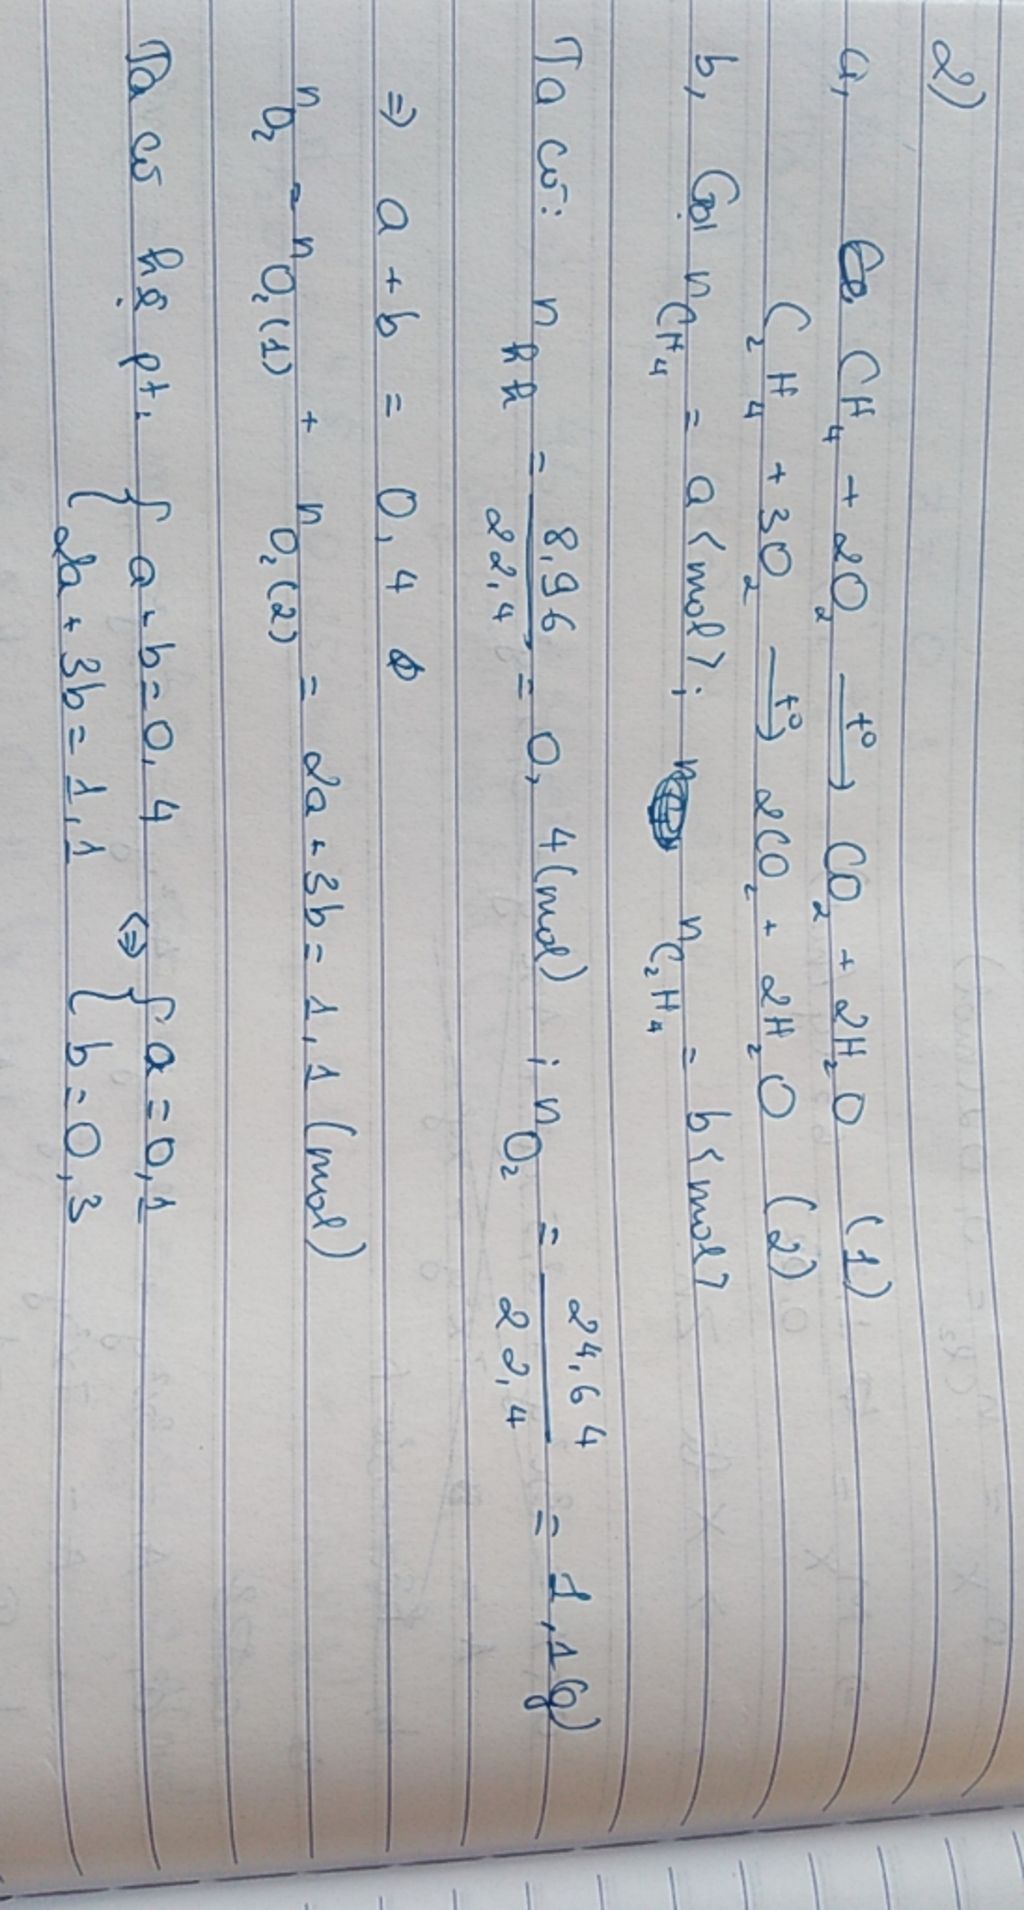 2)
a, CH4 + 2O2 —t°→ CO2 + 2H2O (1)
C2H4 + 3O2 —t°→ 2CO2 + 2H2O (2)
b, Gọi nCH4 = a<mol>; nC2H4 = b<mol>
Ta có: nhh = 8,96/22,4 = 0,4(mol) ; nO2 = 24,64/22,4 = 1,1(g)
=> a + b = 0,4
nO2 = nO2(1) + nO2(2) = 2a + 3b = 1,1 (mol)
Ta có hệ pt: { a + b = 0,4 <=> { a = 0,1
{ 2a + 3b = 1,1 { b = 0,3